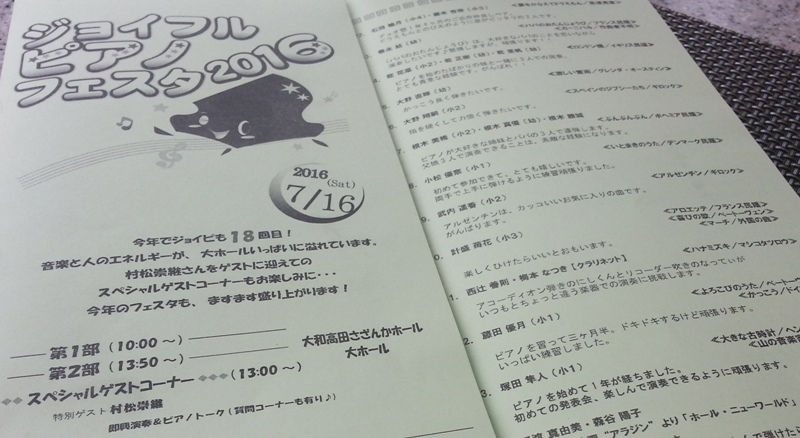 ジョイフル
ピアノ
フェスタ2016
2016
(Sat)
7/16
今年でジョイピも18回目!
音楽と人のエネルギーが、大ホールいっぱいに溢れています。
村松崇継さんをゲストに迎えての
スペシャルゲストコーナーもお楽しみに・・・
今年のフェスタも、ますます盛り上がります!
第1部(10:00 ～)
第2部(13:50 ～)
大和高田さざんかホール
大ホール
スペシャルゲストコーナー (13:00 ～)
特別ゲスト 村松崇継
即興演奏&ピアノトーク(質問コーナーも有り♪)
<ロンドン橋/イギリス民謡>
とても貴重な経験です。がんばれ!!
5. 大野 (幼)
かっこう良く弾きたいです。
<スペインのジプシーたち/ギロック>
6. 大野 (小2)
指を強くして力強く弾きたいです。
<ぶんぶんぶん/ボヘミア民謡>
ピアノが大好きな姉妹とパパの3人で連弾します。
父娘3人で演奏できることは、素敵な経験になります。
<いとまきのうた/デンマーク民謡>
8. 小松 優奈(小1)
初めて参加できて、とても嬉しいです。
両手で上手に弾けるように練習頑張りました。
<アルゼンチン/ギロック>
9. 武内 遥香(小2)
アルゼンチンは、カッコいいお気に入りの曲です。
がんばります。
<アロエッテ/フランス民謡>
<喜びの歌/ベートーヴェン>
<マーチ/外国の曲>
計盛 苺花(小3)
楽しくひけたらいいとおもいます。
<ハナミズキ/マシコタツロウ>
1. 西辻 善則・橋本 なつき[クラリネット]
アコーディオン弾きのにしくんとリコーダー吹きのなっていが
いつもとちょっと違う楽器での演奏に挑戦します。
<よろこびのうた/ベート
<かっこう/ドイ
2. 優月(小1)
ピアノを習って三ヶ月半。ドキドキするけど頑張ります。
いっぱい練習しました。
<大きな古時計/
<山の音楽
3. 塚田 隼人(小1)
ピアノを始めて1年が経ちました。
初めての発表会、楽しんで演奏できるように頑張ります。
真由美・森谷 陽子
“アラジン”より「ホール・ニューワールド」